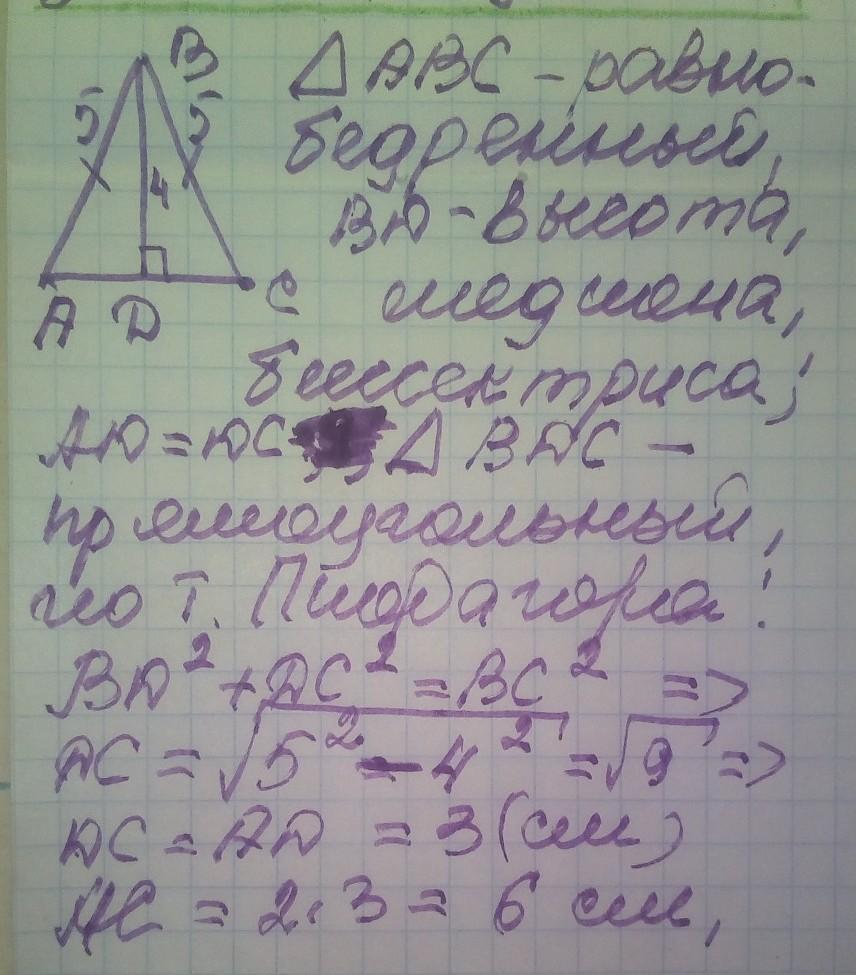 B
5 5
4
A D C
△ ABC - равно-
бедренный,
BD - высота,
медиана,
биссектриса;
AD = DC △ BDC -
прямоугольный,
по т. Пифагора:
BD² + DC² = BC² =>
DC = √5² - 4² = √9 =>
DC = AD = 3 (см)
AC = 2·3 = 6 см,